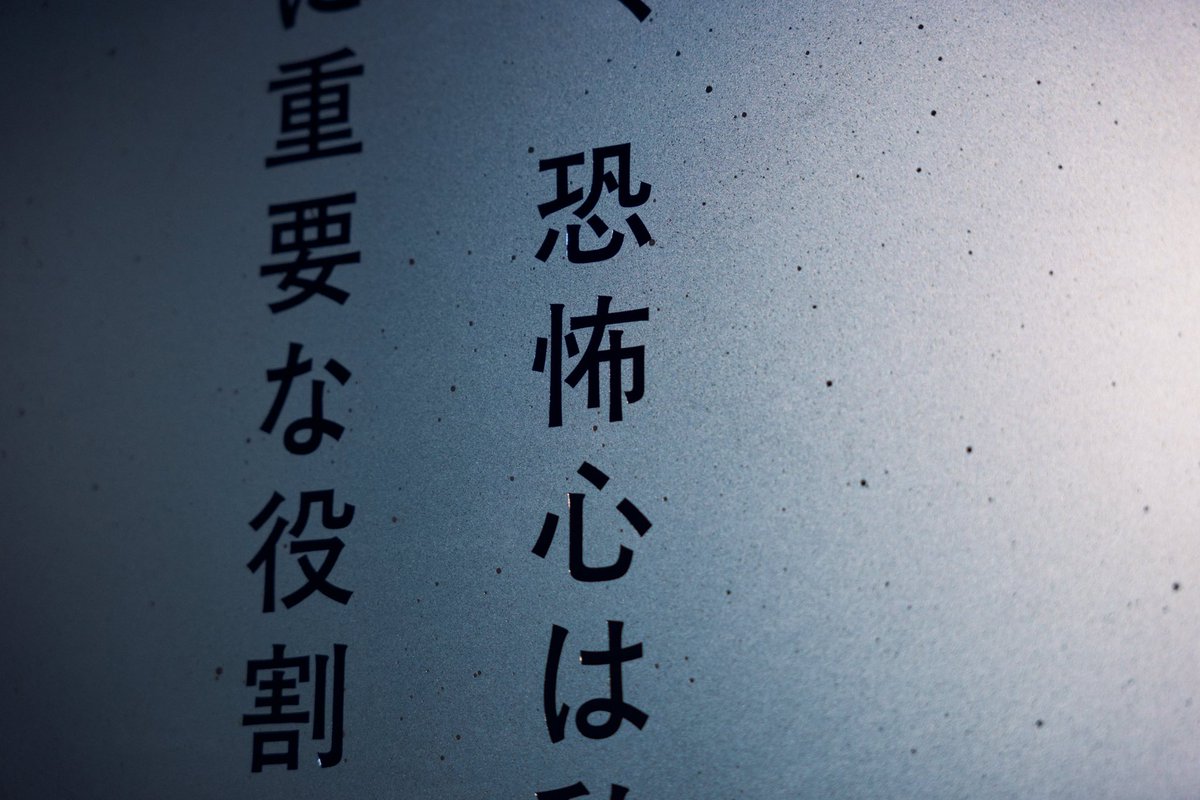 恐怖心は
に重要な役割